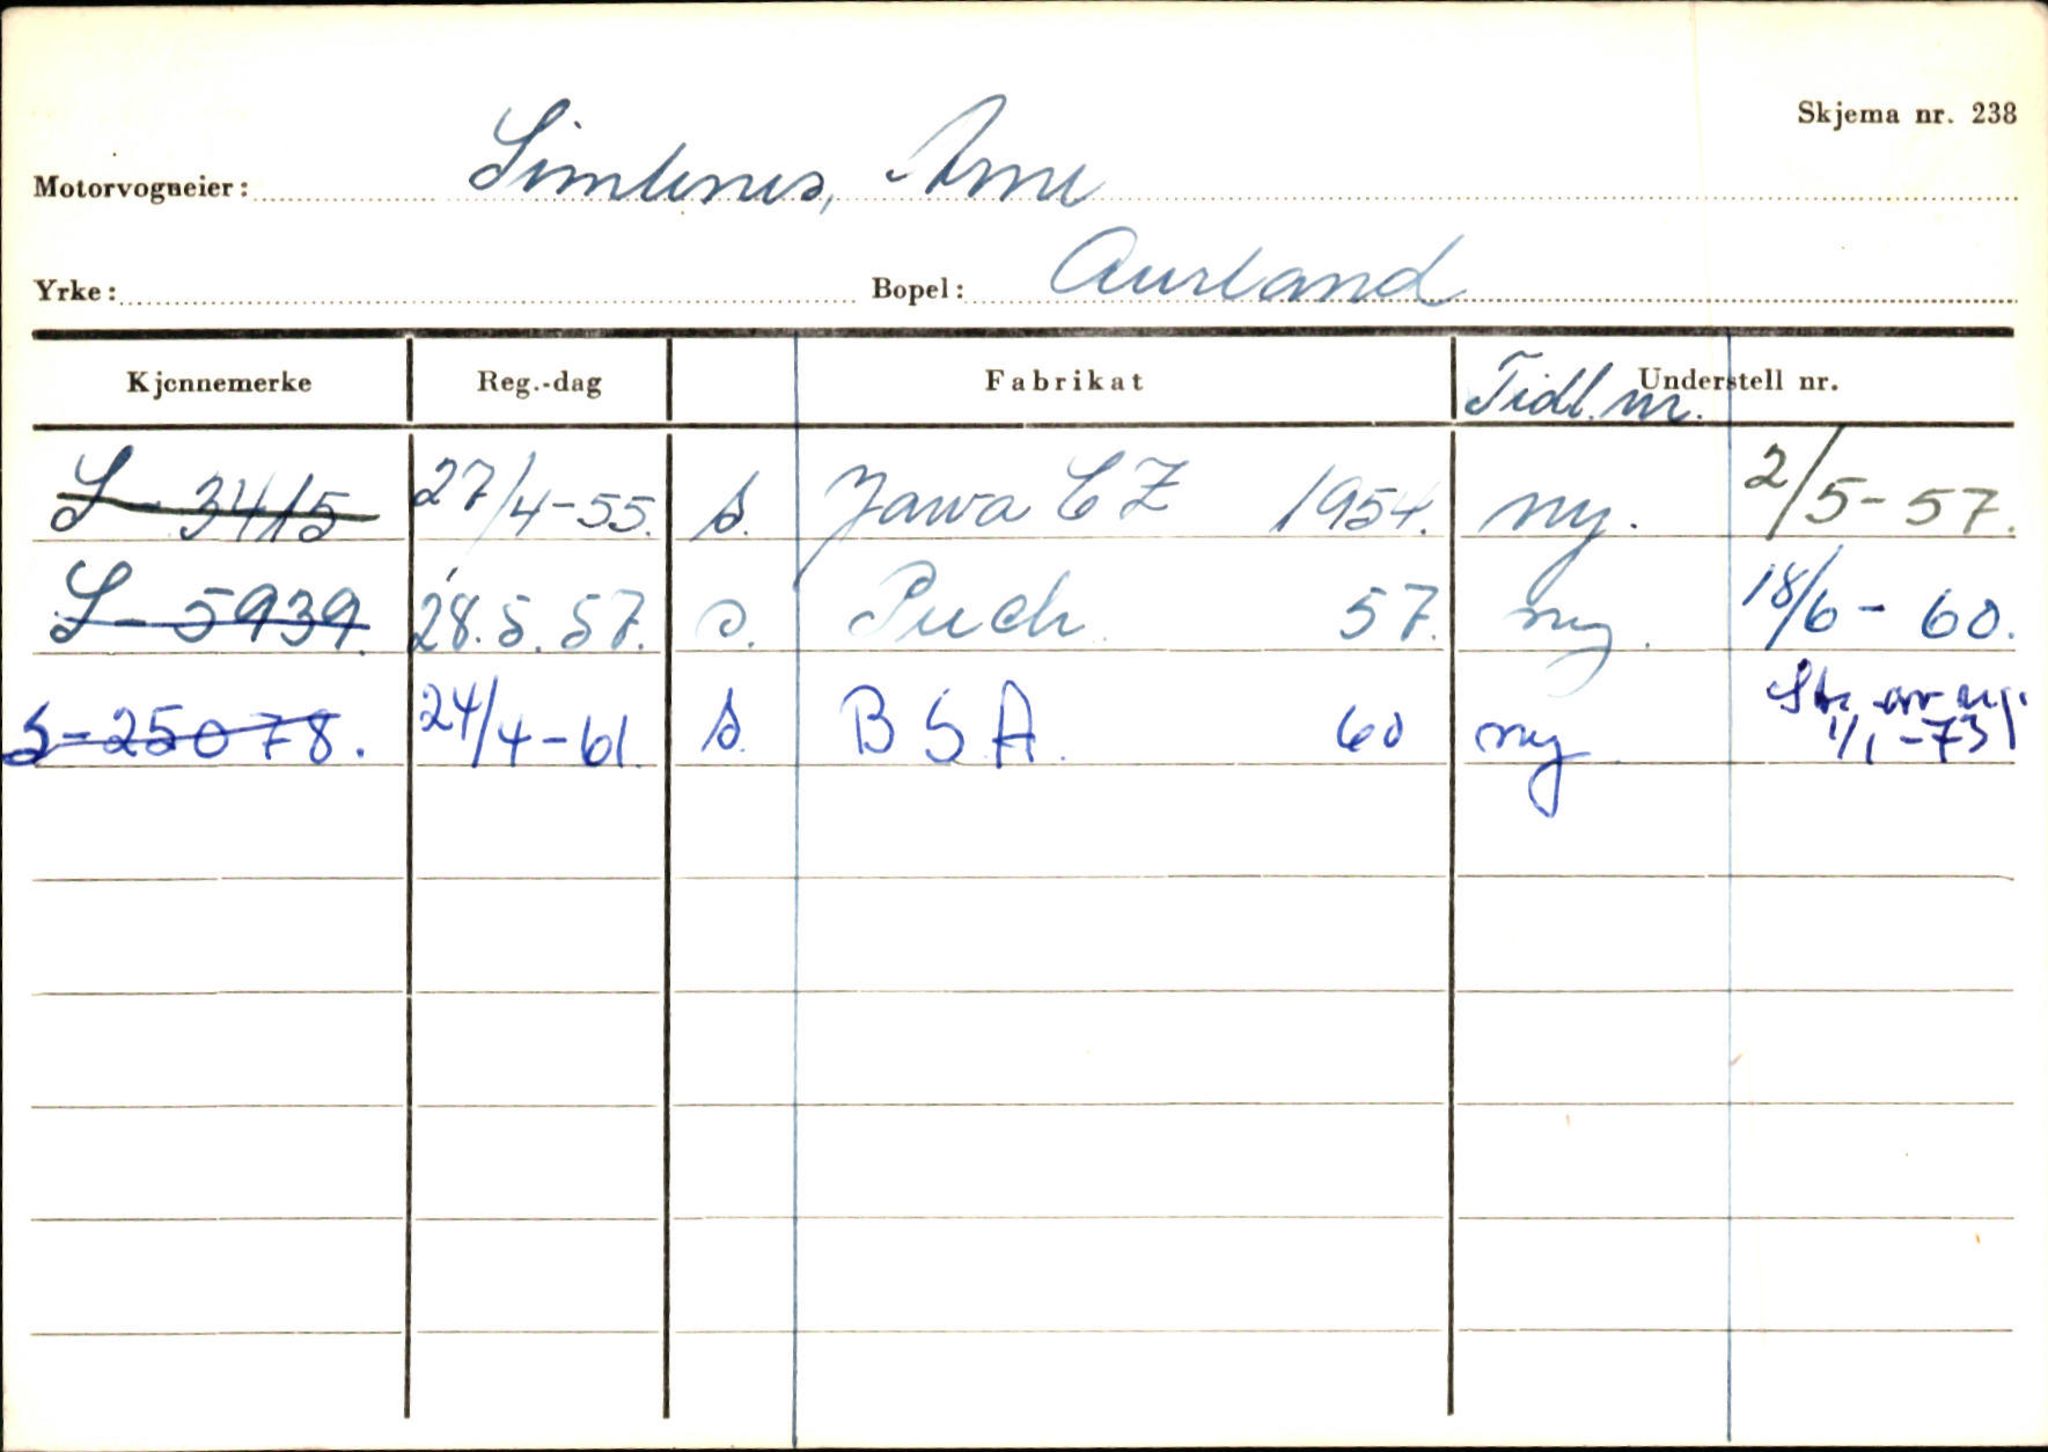 Skjema nr. 238
Motorvogneier: Simlenes, Arne
Yrke: Bopel: Aurland
Kjennemerke Reg.-dag Fabrikat Tidl. nr. Understell nr.
S-3415 27/4-55. s. Jawa CZ 1954. ny. 2/5-57.
S-5939. 28.5.57. s. Puch 57. ny. 18/6-60.
S-25078. 24/4-61. s. BSA. 60 ny Str. av reg.
1/1-73